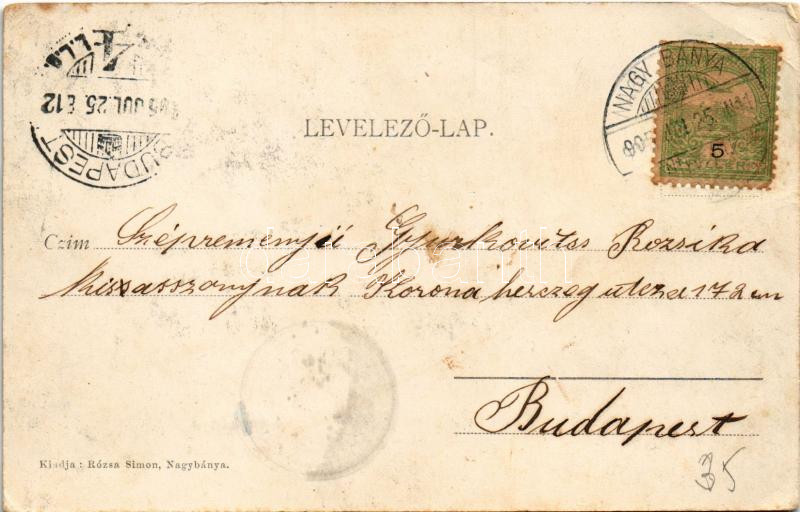 NAGY-BÁNYA
905 JUL. 25.
5
BUDAPEST
905 JUL. 25.
LEVELEZŐ-LAP.
Czim Szépreményü Gyurkovitss Rozsika
kissasszonynak Korona herczeg utcza 17 2em
Budapest
Kiadja : Rózsa Simon, Nagybánya.
35